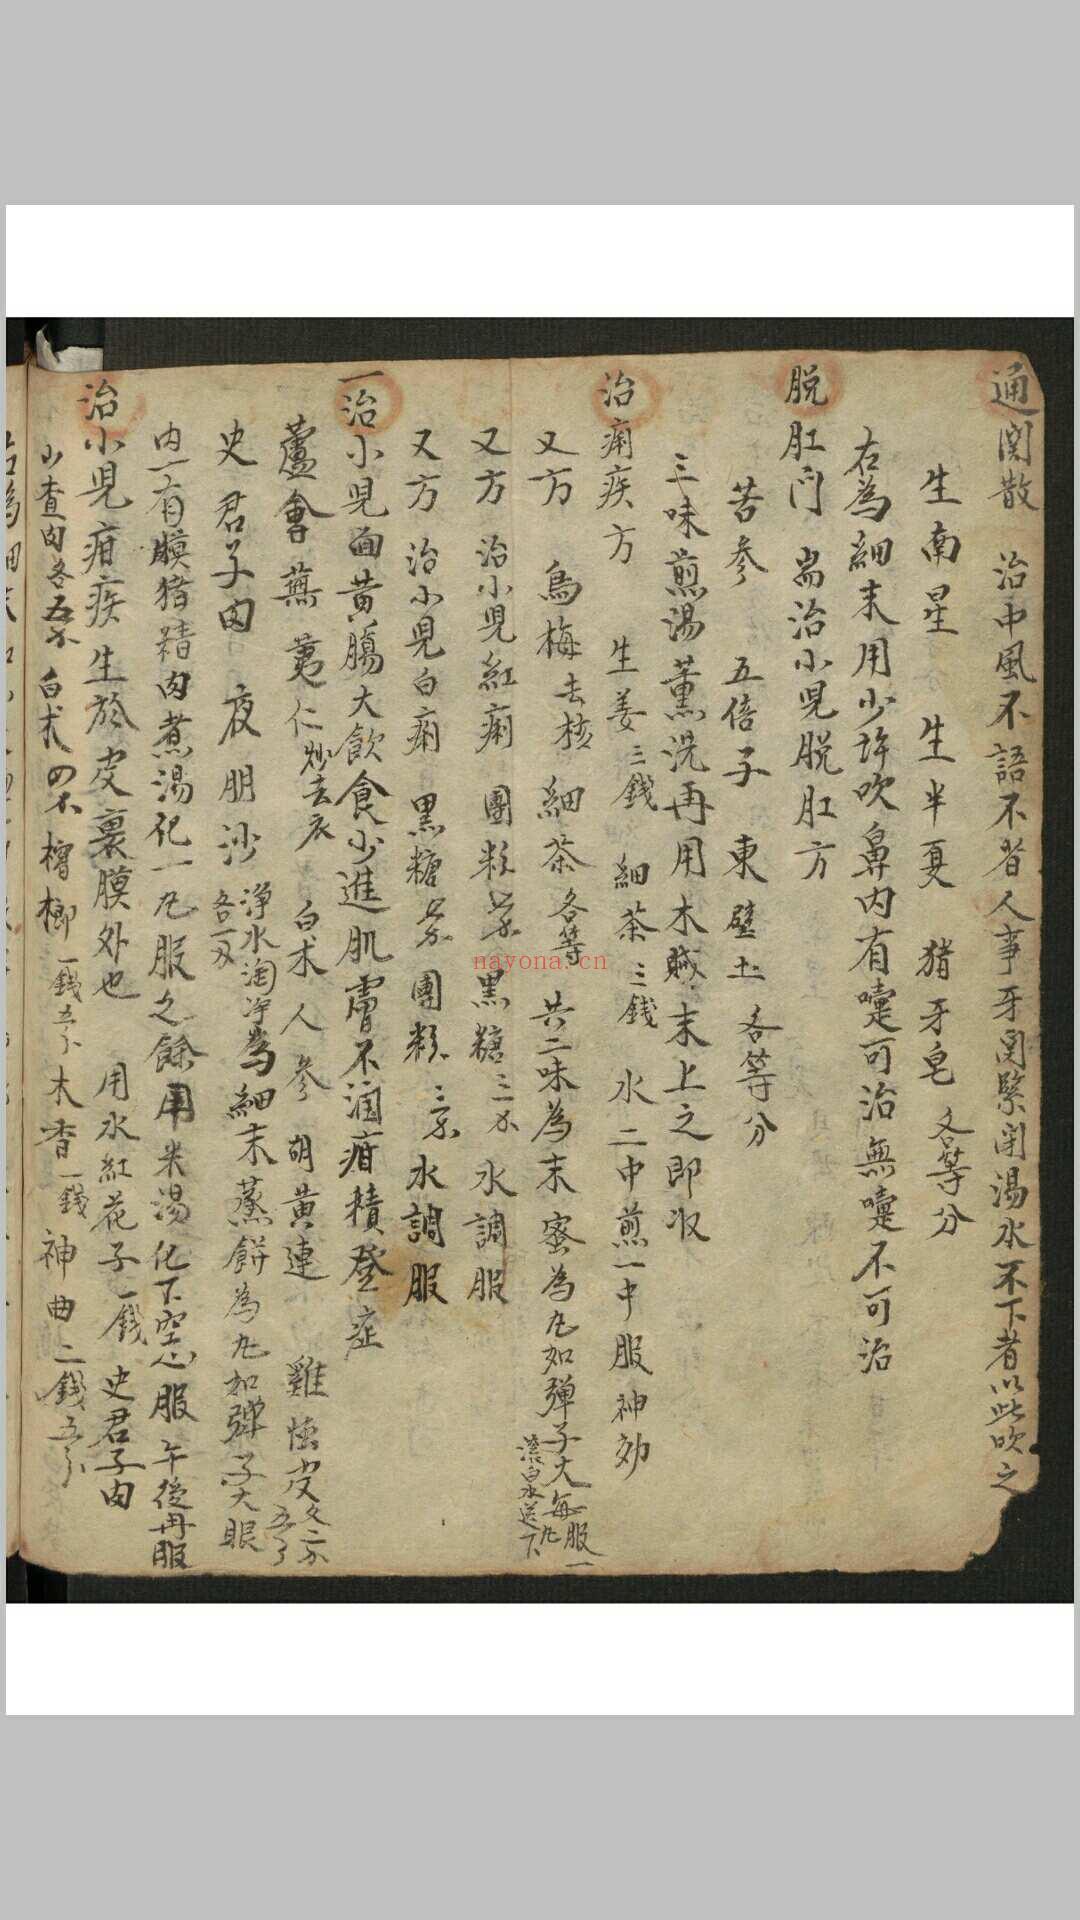 通関散 治中風不語不省人事牙関緊閉湯水不下者以此吹之
生南星 生半夏 猪牙皂 各等分
右為細末用少許吹鼻内有嚏可治無嚏不可治
脱肛门 耑治小児脱肛方
苦参 五倍子 東壁土 各等分
三味煎湯薫洗再用木贼末上之即收
治痢疾方 生姜三錢 細茶三錢 水二中煎一中服神効
又方 烏梅去核 細茶各等 共二味為末蜜為丸如弹子大每服一丸滚白水送下
又方 治小児紅痢 團粉 黑糖三 水調服
又方 治小児白痢 黑糖 團粉 水調服
一治小児面黄腸大飲食少進肌膚不潤疳積登症
蘆會 蕪荑仁炒去衣 白术 人参 胡黄連 雞 皮
史君子肉 夜明沙 净水淘净為細末蒸餅為丸如弹子大眼
内一有膜猪精肉煮湯化一丸服之餘用米湯化下空心服午後再服
治小児疳疾生於皮裏膜外也 用水紅花子一錢 史君子肉
山查肉各五 白术四 檳榔一錢五分 木香一錢 神曲二錢五分
nayona.cn